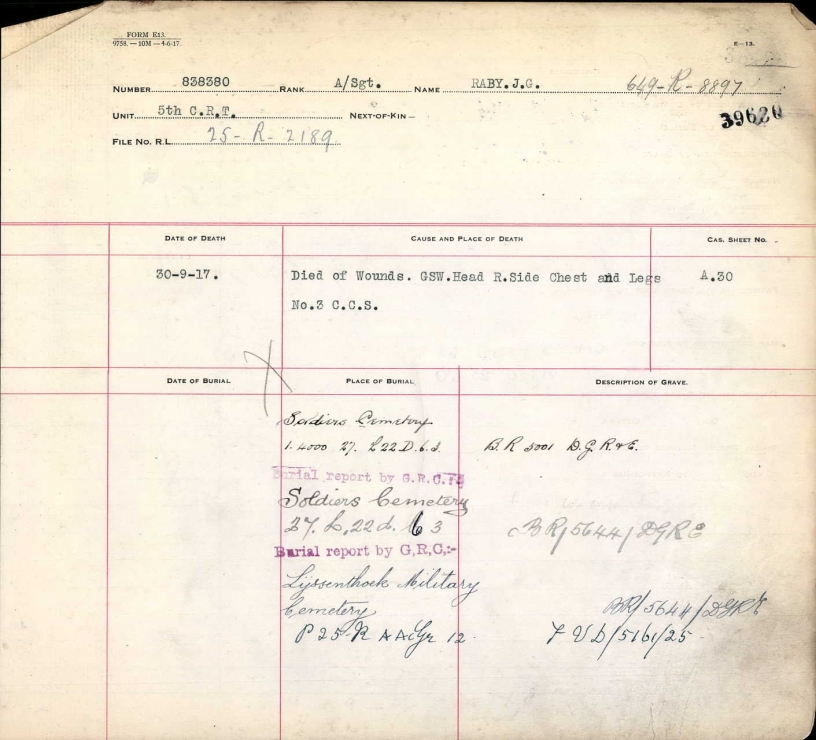 FORM E13.
9758. — 10M — 4-6-17.
E—13.
NUMBER 838380 RANK A/Sgt. NAME RABY. J.G. 649-R-8897
UNIT 5th C.R.T. NEXT-OF-KIN—
39620
FILE NO. R.L. 25-R-2189
DATE OF DEATH CAUSE AND PLACE OF DEATH CAS. SHEET NO.
30-9-17. Died of Wounds. GSW.Head R.Side Chest and Legs A.30
No.3 C.C.S.
DATE OF BURIAL PLACE OF BURIAL DESCRIPTION OF GRAVE.
Soldiers Cemetery
27. L 22 D. 6. 3. B.R 5001 D.G.R&E.
Burial report by G.R.C.
Soldiers Cemetery
27. L. 22 d. 6 3 BR/5644/DGRE
Burial report by G,R,C,:-
Lijssenthoek Military
Cemetery BR/5644/DGRE
P 25-R AA Gr 12. 7 VD/5161/25